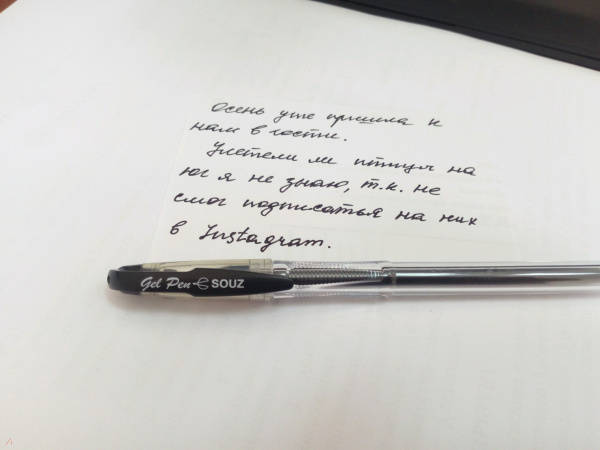 Осень уже пришла к
нам в гости.
Улетели ли птицы на
юг я не знаю, т.к. не
смог подписаться на них
в Instagram.
Gel Pen SOUZ